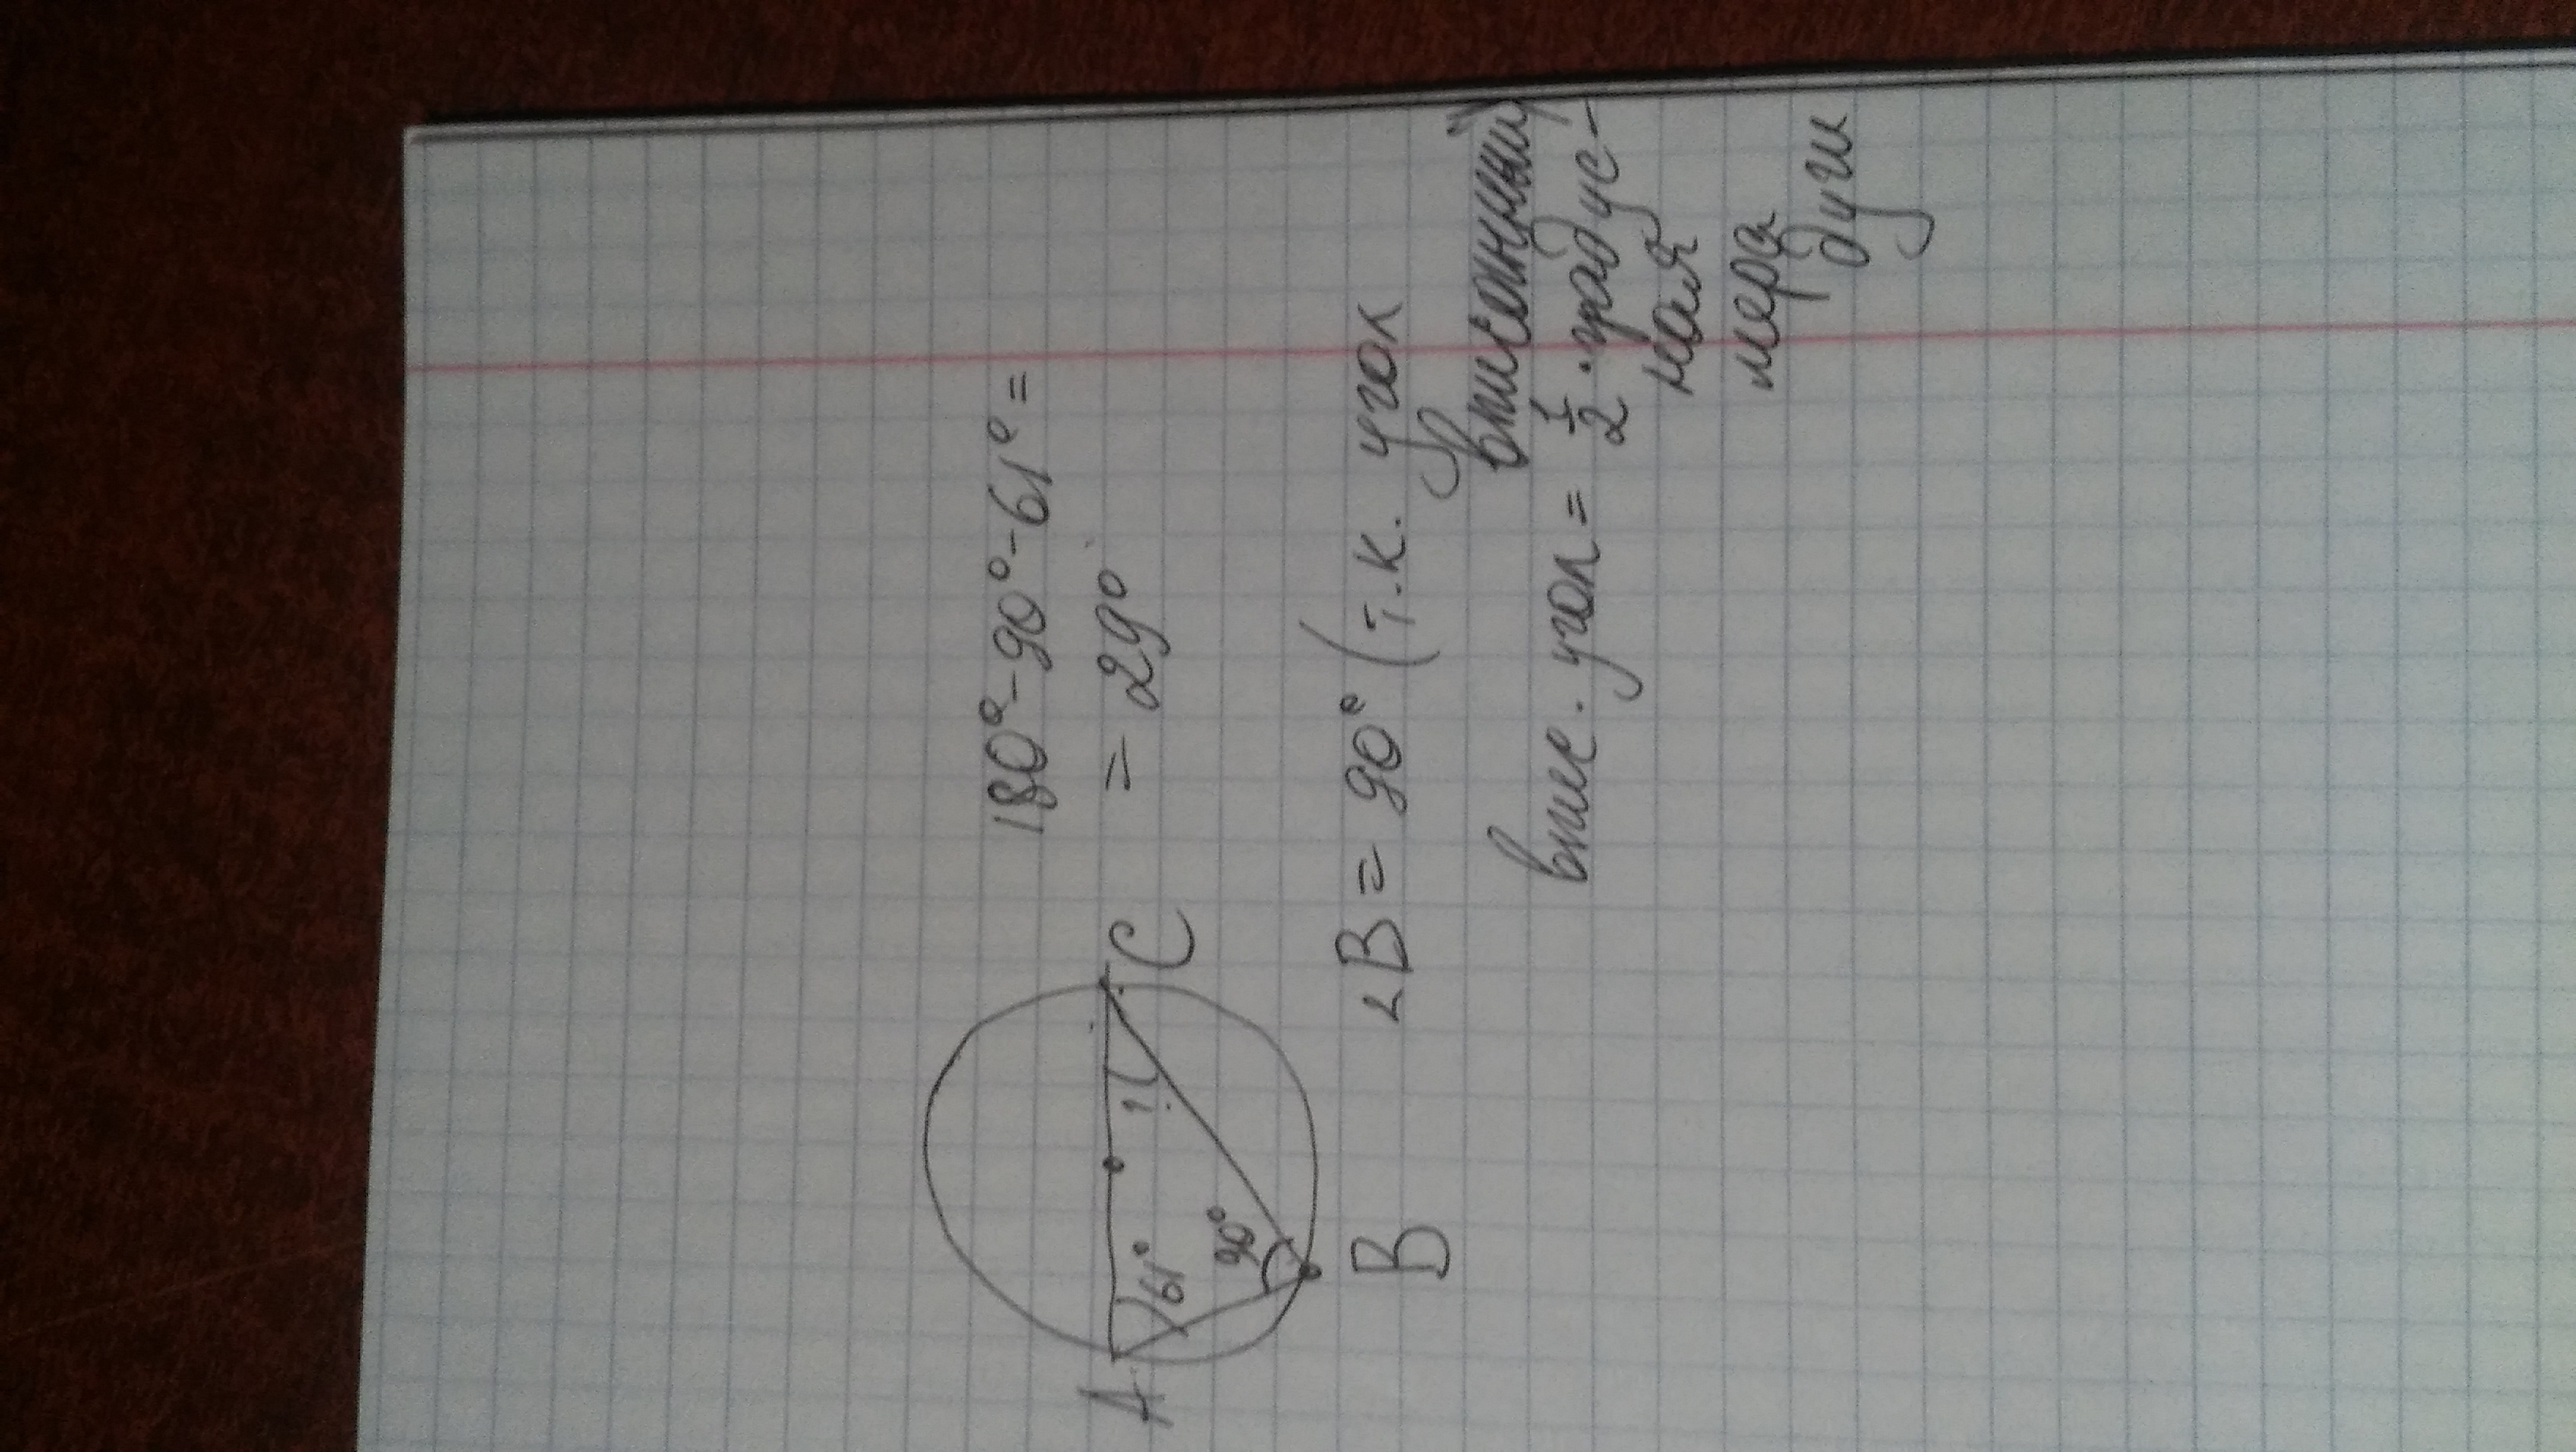 180° - 90° - 61° =
= 29°
A
61°
90°
?
C
B
∠B = 90° (т.к. угол
вписанный)
впис. угол = 1/2 · градус-
ная
мера
дуги